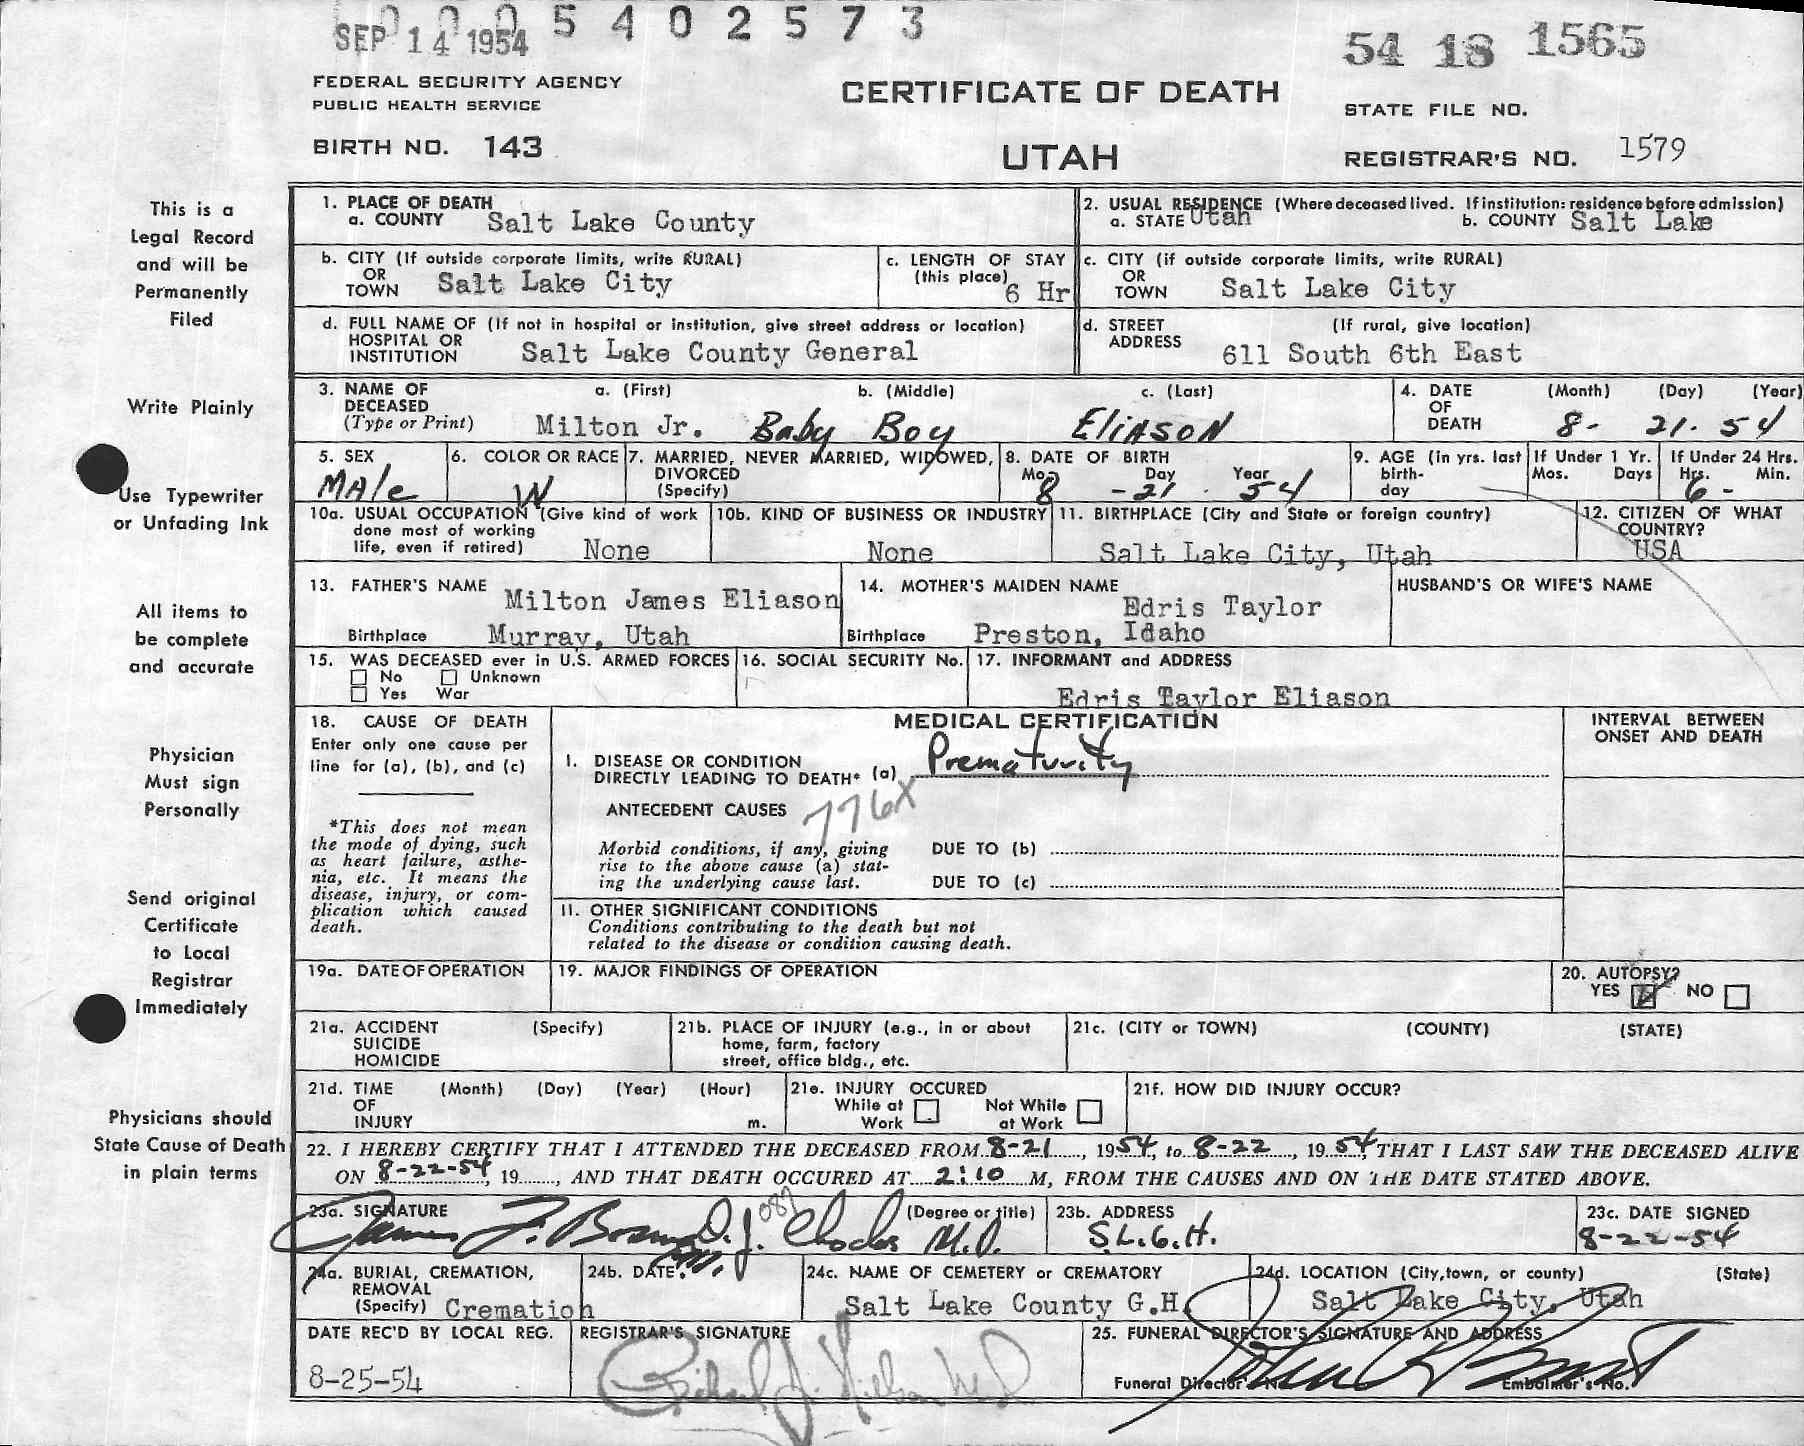 0005402573
SEP 14 1954
54 18 1565
FEDERAL SECURITY AGENCY
PUBLIC HEALTH SERVICE
CERTIFICATE OF DEATH
STATE FILE NO.
BIRTH NO. 143
UTAH
REGISTRAR'S NO. 1579
This is a
Legal Record
and will be
Permanently
Filed
Write Plainly
Use Typewriter
or Unfading Ink
All items to
be complete
and accurate
Physician
Must sign
Personally
Send original
Certificate
to Local
Registrar
Immediately
Physicians should
State Cause of Death
in plain terms
1. PLACE OF DEATH
a. COUNTY Salt Lake County
2. USUAL RESIDENCE (Where deceased lived. If institution: residence before admission)
a. STATE Utah b. COUNTY Salt Lake
b. CITY (If outside corporate limits, write RURAL)
OR
TOWN Salt Lake City
c. LENGTH OF STAY
(this place)
6 Hr
c. CITY (if outside corporate limits, write RURAL)
OR
TOWN Salt Lake City
d. FULL NAME OF (If not in hospital or institution, give street address or location)
HOSPITAL OR
INSTITUTION Salt Lake County General
d. STREET (If rural, give location)
ADDRESS
611 South 6th East
3. NAME OF a. (First) b. (Middle) c. (Last)
DECEASED
(Type or Print) Milton Jr. Baby Boy Eliason
4. DATE (Month) (Day) (Year)
OF
DEATH 8- 21. 54
5. SEX
Male
6. COLOR OR RACE
W
7. MARRIED, NEVER MARRIED, WIDOWED,
DIVORCED
(Specify)
8. DATE OF BIRTH
Mo. Day Year
8 -21 . 54
9. AGE (in yrs. last
birth-
day
If Under 1 Yr.
Mos. Days
If Under 24 Hrs.
Hrs. Min.
6 -
10a. USUAL OCCUPATION (Give kind of work
done most of working
life, even if retired) None
10b. KIND OF BUSINESS OR INDUSTRY
None
11. BIRTHPLACE (City and State or foreign country)
Salt Lake City, Utah
12. CITIZEN OF WHAT
COUNTRY?
USA
13. FATHER'S NAME Milton James Eliason
Birthplace Murray, Utah
14. MOTHER'S MAIDEN NAME
Edris Taylor
Birthplace Preston, Idaho
HUSBAND'S OR WIFE'S NAME
15. WAS DECEASED ever in U.S. ARMED FORCES
No Unknown
Yes War
16. SOCIAL SECURITY No.
17. INFORMANT and ADDRESS
Edris Taylor Eliason
18. CAUSE OF DEATH
Enter only one cause per
line for (a), (b), and (c)
*This does not mean
the mode of dying, such
as heart failure, asthe-
nia, etc. It means the
disease, injury, or com-
plication which caused
death.
MEDICAL CERTIFICATION
INTERVAL BETWEEN
ONSET AND DEATH
I. DISEASE OR CONDITION
DIRECTLY LEADING TO DEATH* (a) Prematurity
ANTECEDENT CAUSES 776X
Morbid conditions, if any, giving
rise to the above cause (a) stat-
ing the underlying cause last.
DUE TO (b)
DUE TO (c)
11. OTHER SIGNIFICANT CONDITIONS
Conditions contributing to the death but not
related to the disease or condition causing death.
19a. DATE OF OPERATION
19. MAJOR FINDINGS OF OPERATION
20. AUTOPSY?
YES NO
21a. ACCIDENT (Specify)
SUICIDE
HOMICIDE
21b. PLACE OF INJURY (e.g., in or about
home, farm, factory
street, office bldg., etc.
21c. (CITY or TOWN) (COUNTY) (STATE)
21d. TIME (Month) (Day) (Year) (Hour)
OF
INJURY m.
21e. INJURY OCCURED
While at Not While
Work at Work
21f. HOW DID INJURY OCCUR?
22. I HEREBY CERTIFY THAT I ATTENDED THE DECEASED FROM 8-21, 1954, to 8-22, 1954, THAT I LAST SAW THE DECEASED ALIVE
ON 8-22-54, 19......., AND THAT DEATH OCCURED AT 2:10 M, FROM THE CAUSES AND ON THE DATE STATED ABOVE.
23a. SIGNATURE (Degree or title)
James M.D.
087
23b. ADDRESS
S.L.G.H.
23c. DATE SIGNED
8-22-54
24a. BURIAL, CREMATION,
REMOVAL
(Specify) Cremation
24b. DATE
24c. NAME OF CEMETERY or CREMATORY
Salt Lake County G.H.
24d. LOCATION (City, town, or county) (State)
Salt Lake City, Utah
DATE REC'D BY LOCAL REG.
8-25-54
REGISTRAR'S SIGNATURE
25. FUNERAL DIRECTOR'S SIGNATURE AND ADDRESS
Funeral Director's No. Embalmer's No.